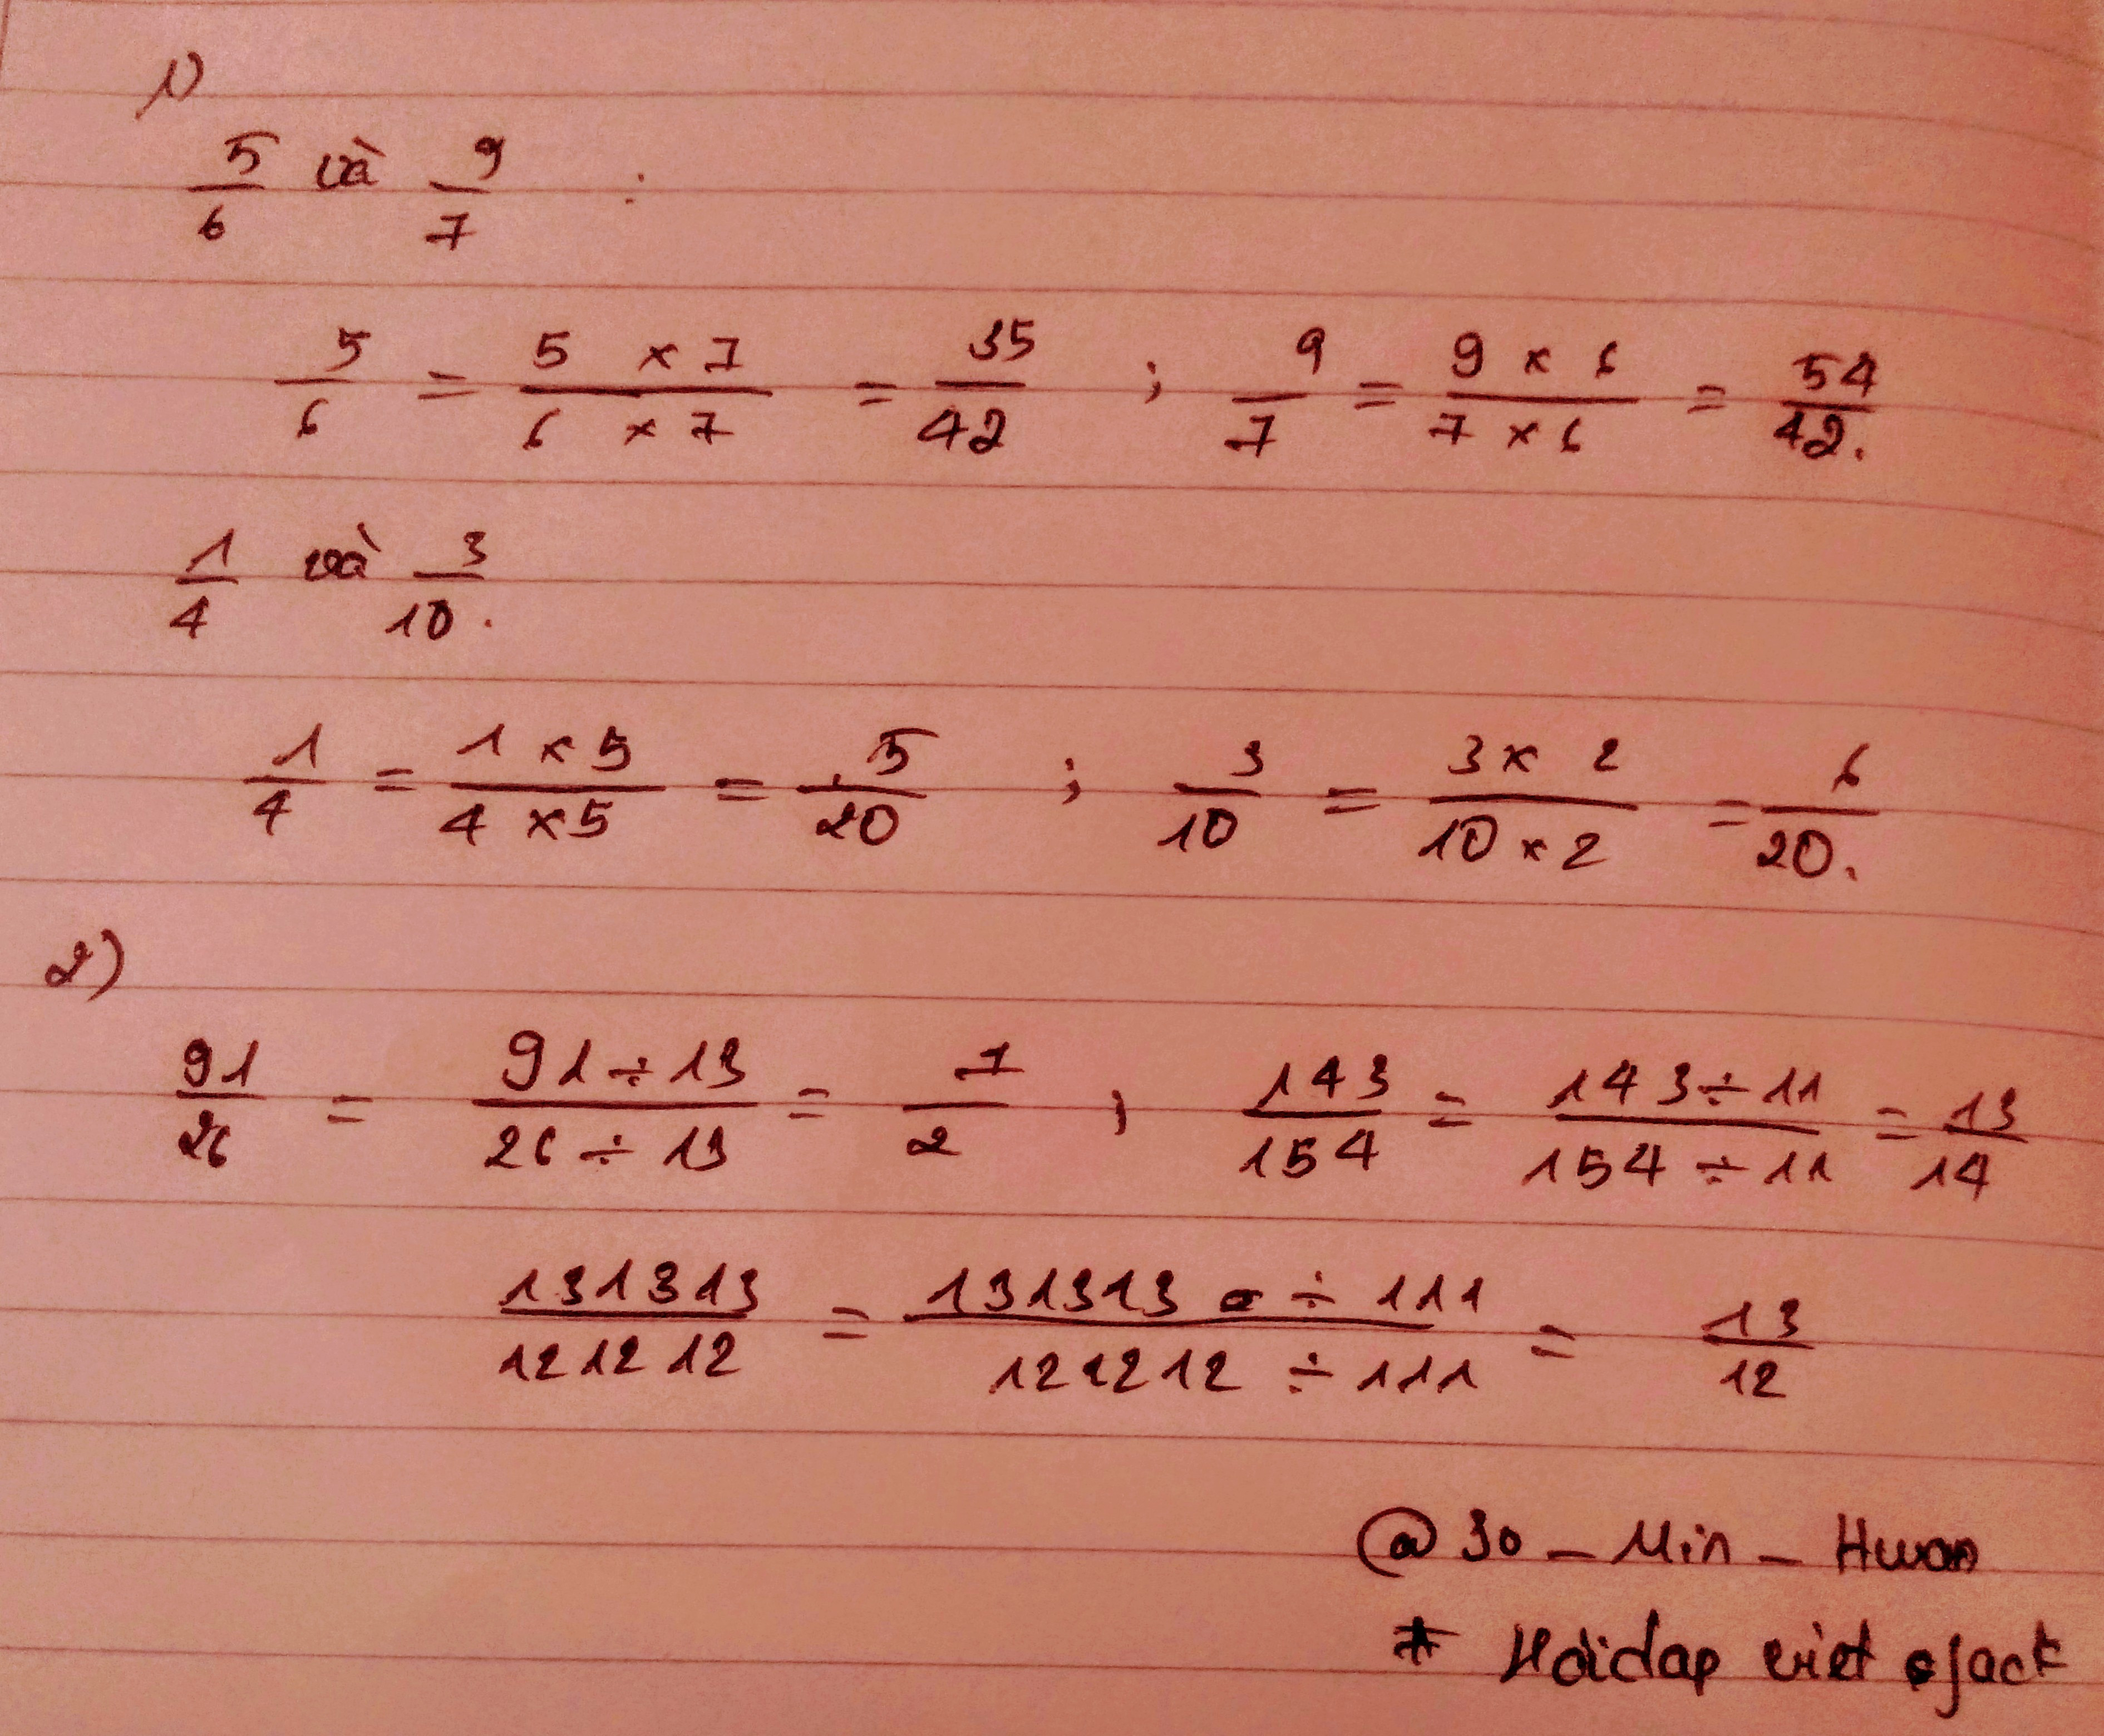 1)
5/6 và 9/7 :
5/6 = 5 x 7 / 6 x 7 = 35/42 ; 9/7 = 9 x 6 / 7 x 6 = 54/42.
1/4 và 3/10.
1/4 = 1 x 5 / 4 x 5 = 5/20 ; 3/10 = 3 x 2 / 10 x 2 = 6/20.
2)
91/26 = 91 ÷ 13 / 26 ÷ 13 = 7/2 ; 143/154 = 143 ÷ 11 / 154 ÷ 11 = 13/14
131313/121212 = 131313 ÷ 111 / 121212 ÷ 111 = 13/12
@ 30 _ Min _ Hwan
* Hoidap viet jack